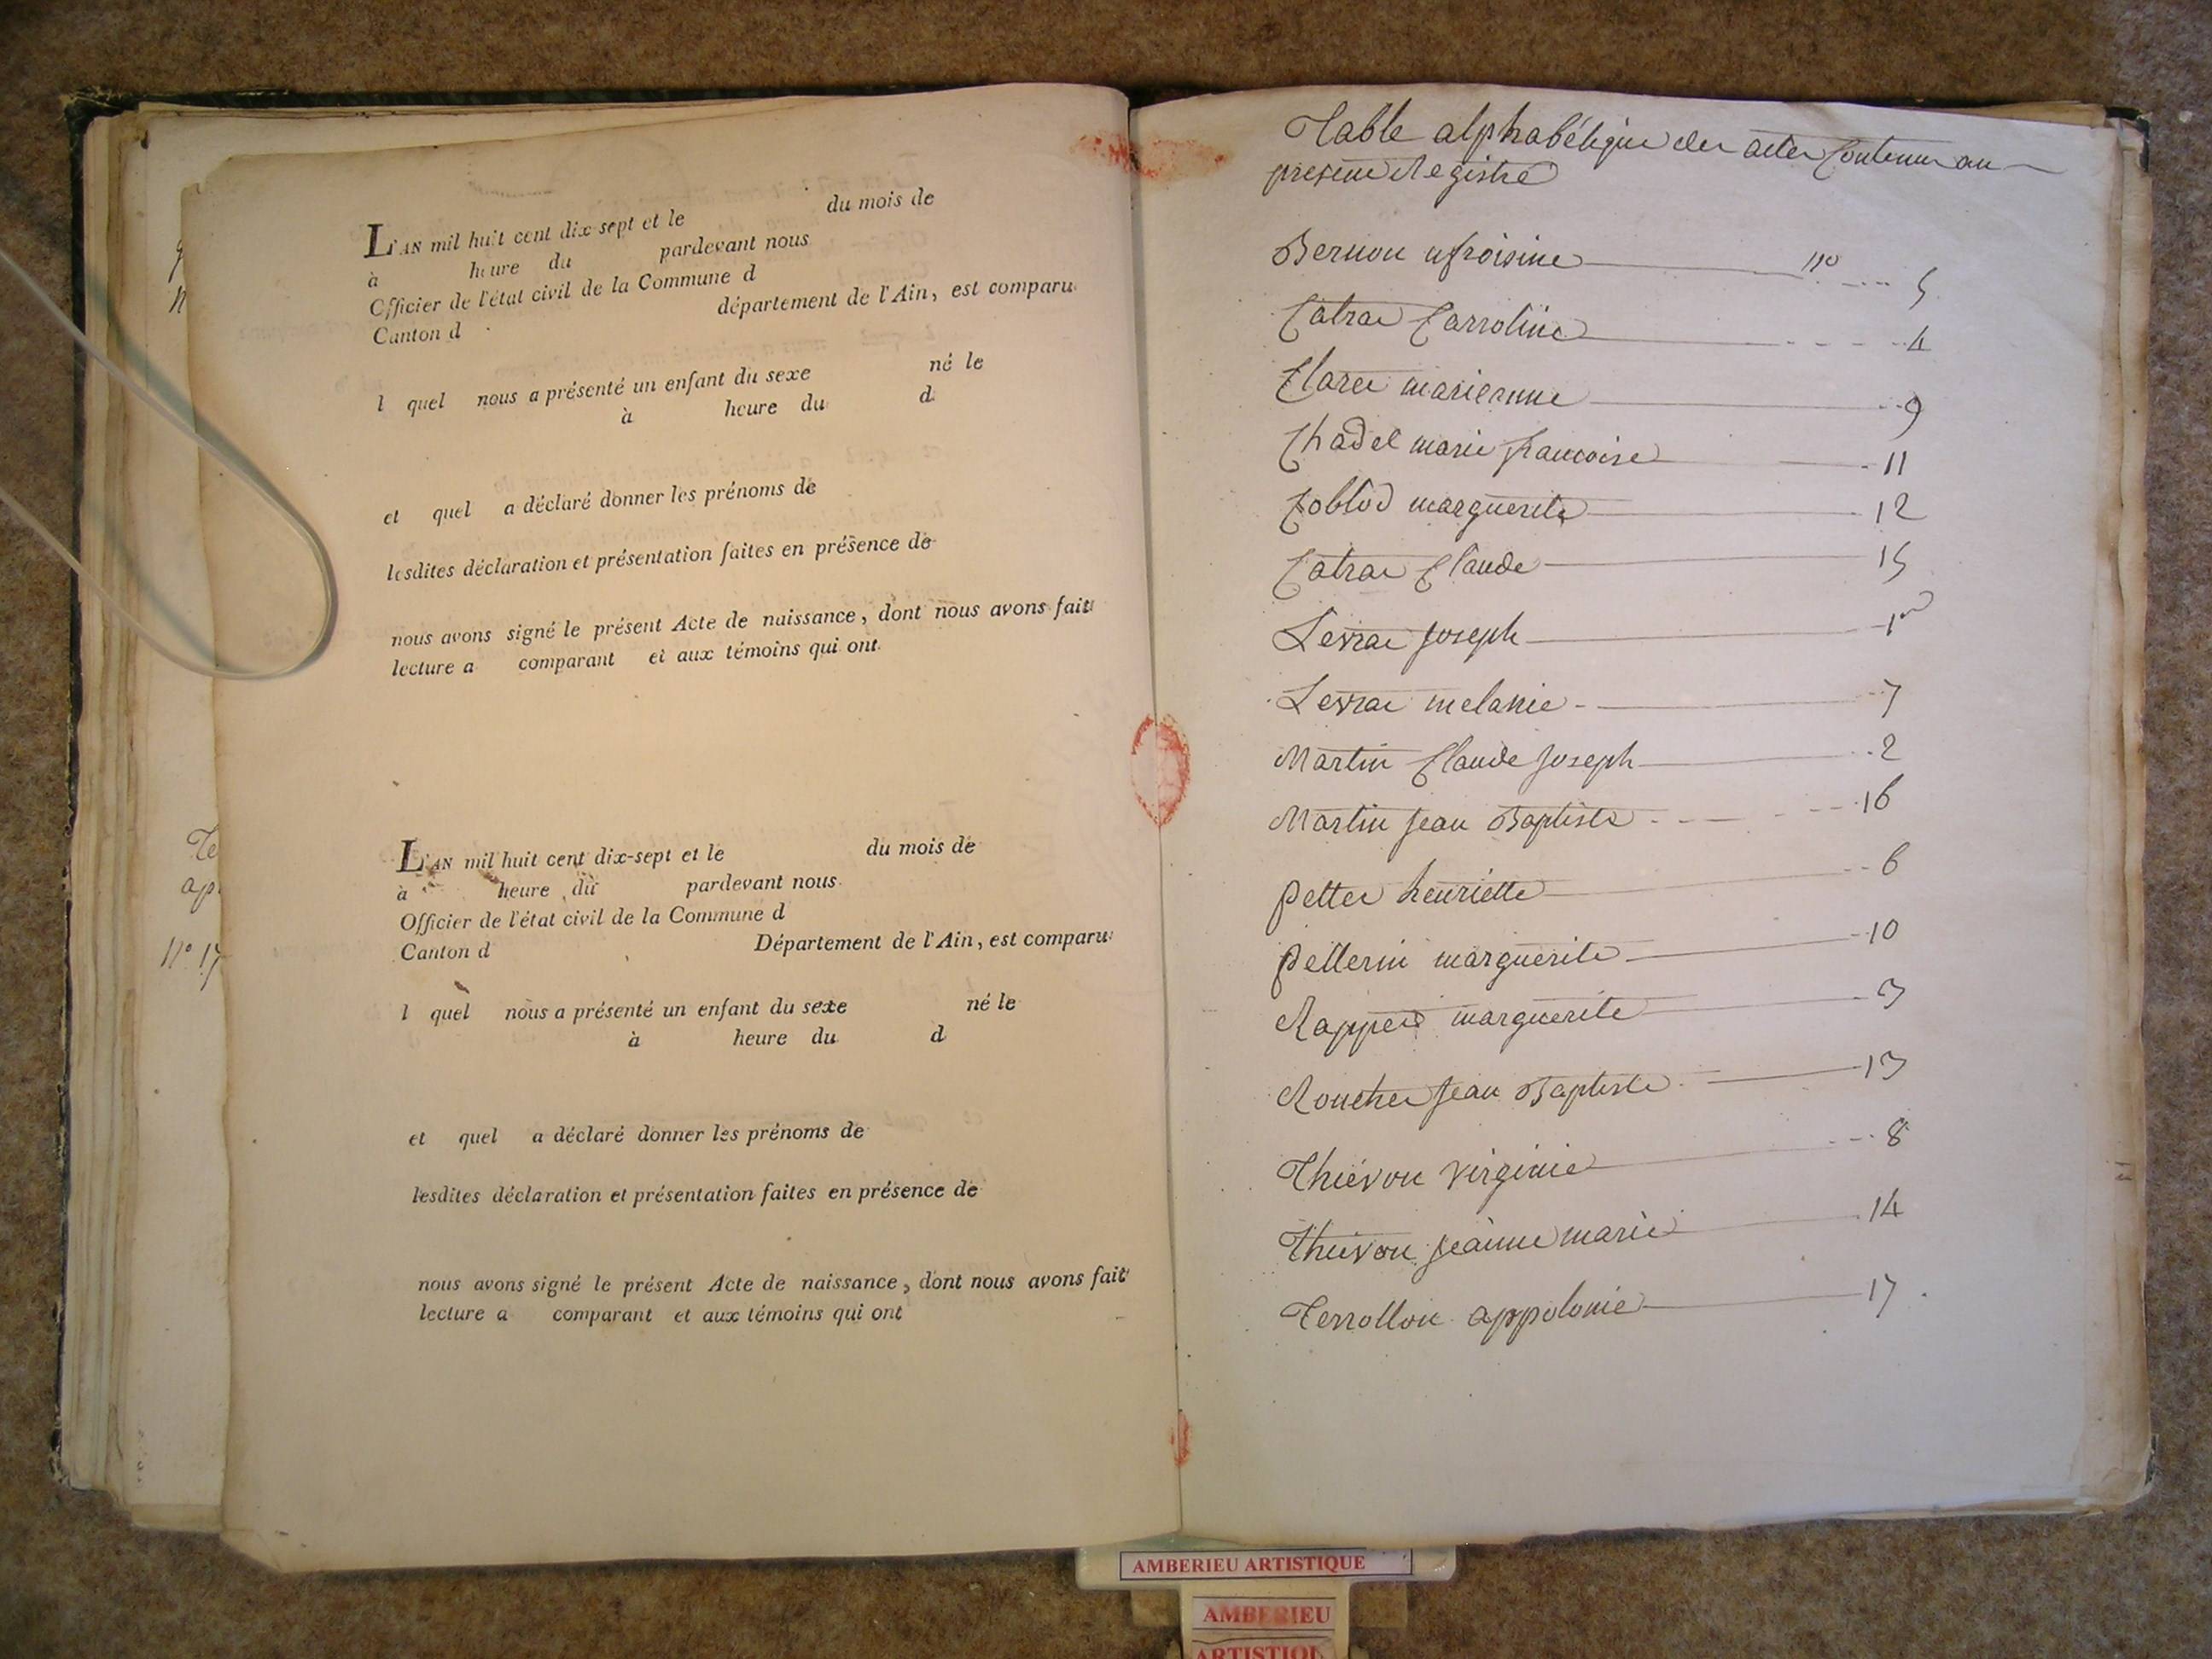 L'AN mil huit cent dix-sept et le du mois de
à heure du pardevant nous
Officier de l'état civil de la Commune d
Canton d département de l'Ain, est comparu
l quel nous a présenté un enfant du sexe né le
à heure du d
et quel a déclaré donner les prénoms de
lesdites déclaration et présentation faites en présence de
nous avons signé le présent Acte de naissance, dont nous avons fait
lecture a comparant et aux témoins qui ont
L'AN mil huit cent dix-sept et le du mois de
à heure du pardevant nous
Officier de l'état civil de la Commune d
Canton d Département de l'Ain, est comparu
l quel nous a présenté un enfant du sexe né le
à heure du d
et quel a déclaré donner les prénoms de
lesdites déclaration et présentation faites en présence de
nous avons signé le présent Acte de naissance, dont nous avons fait
lecture a comparant et aux témoins qui ont
Te
ap
n° 17
Table alphabétique des actes Contenus au
present Registre
Bernon ufroisine n° 5
Catrac Carroline 4
Claret marieanne 9
Chadel marie francoise 11
Coblod marguerite 12
Catrac Claude 15
Levrat Joseph 1er
Levrat melanie 7
Martin Claude Joseph 2
Martin Jean Baptiste 16
pettet henriette 6
pellerin marguerite 10
Rappet marguerite 3
Rouchet Jean Baptiste 13
Thiévon virginie 8
Thiévon jeanne marie 14
Terrollon appolonie 17
AMBERIEU ARTISTIQUE
AMBERIEU
ARTISTIQU